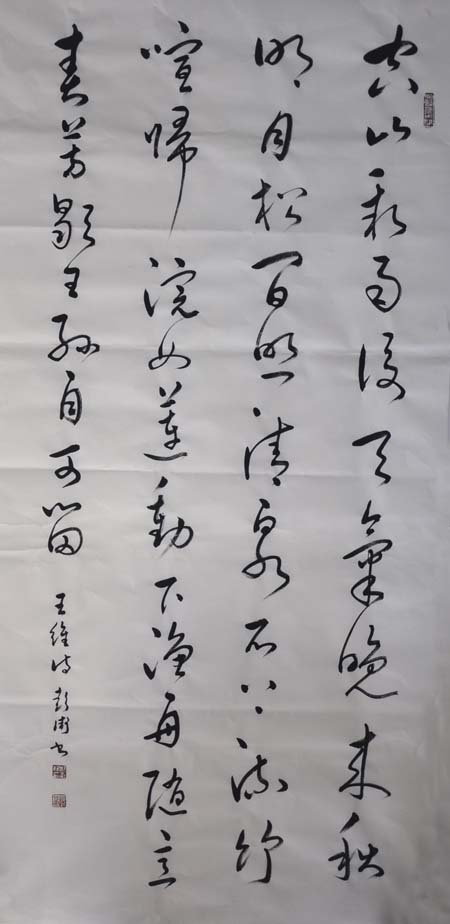 空山新雨後天氣晚來秋
明月松間照清泉石上流竹
喧歸浣女蓮動下漁舟隨意
春芳歇王孫自可留
王維詩 彭 書